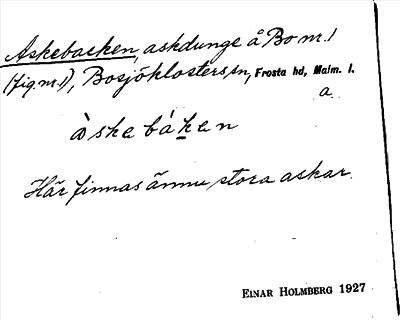 Askebacken, askdunge å Bo nr. 1
(fig. nr. 1), Bosjöklosters sn, Frosta hd, Malm. l.
a.
àskebáken
Här finnas ännu stora askar.
EINAR HOLMBERG 1927